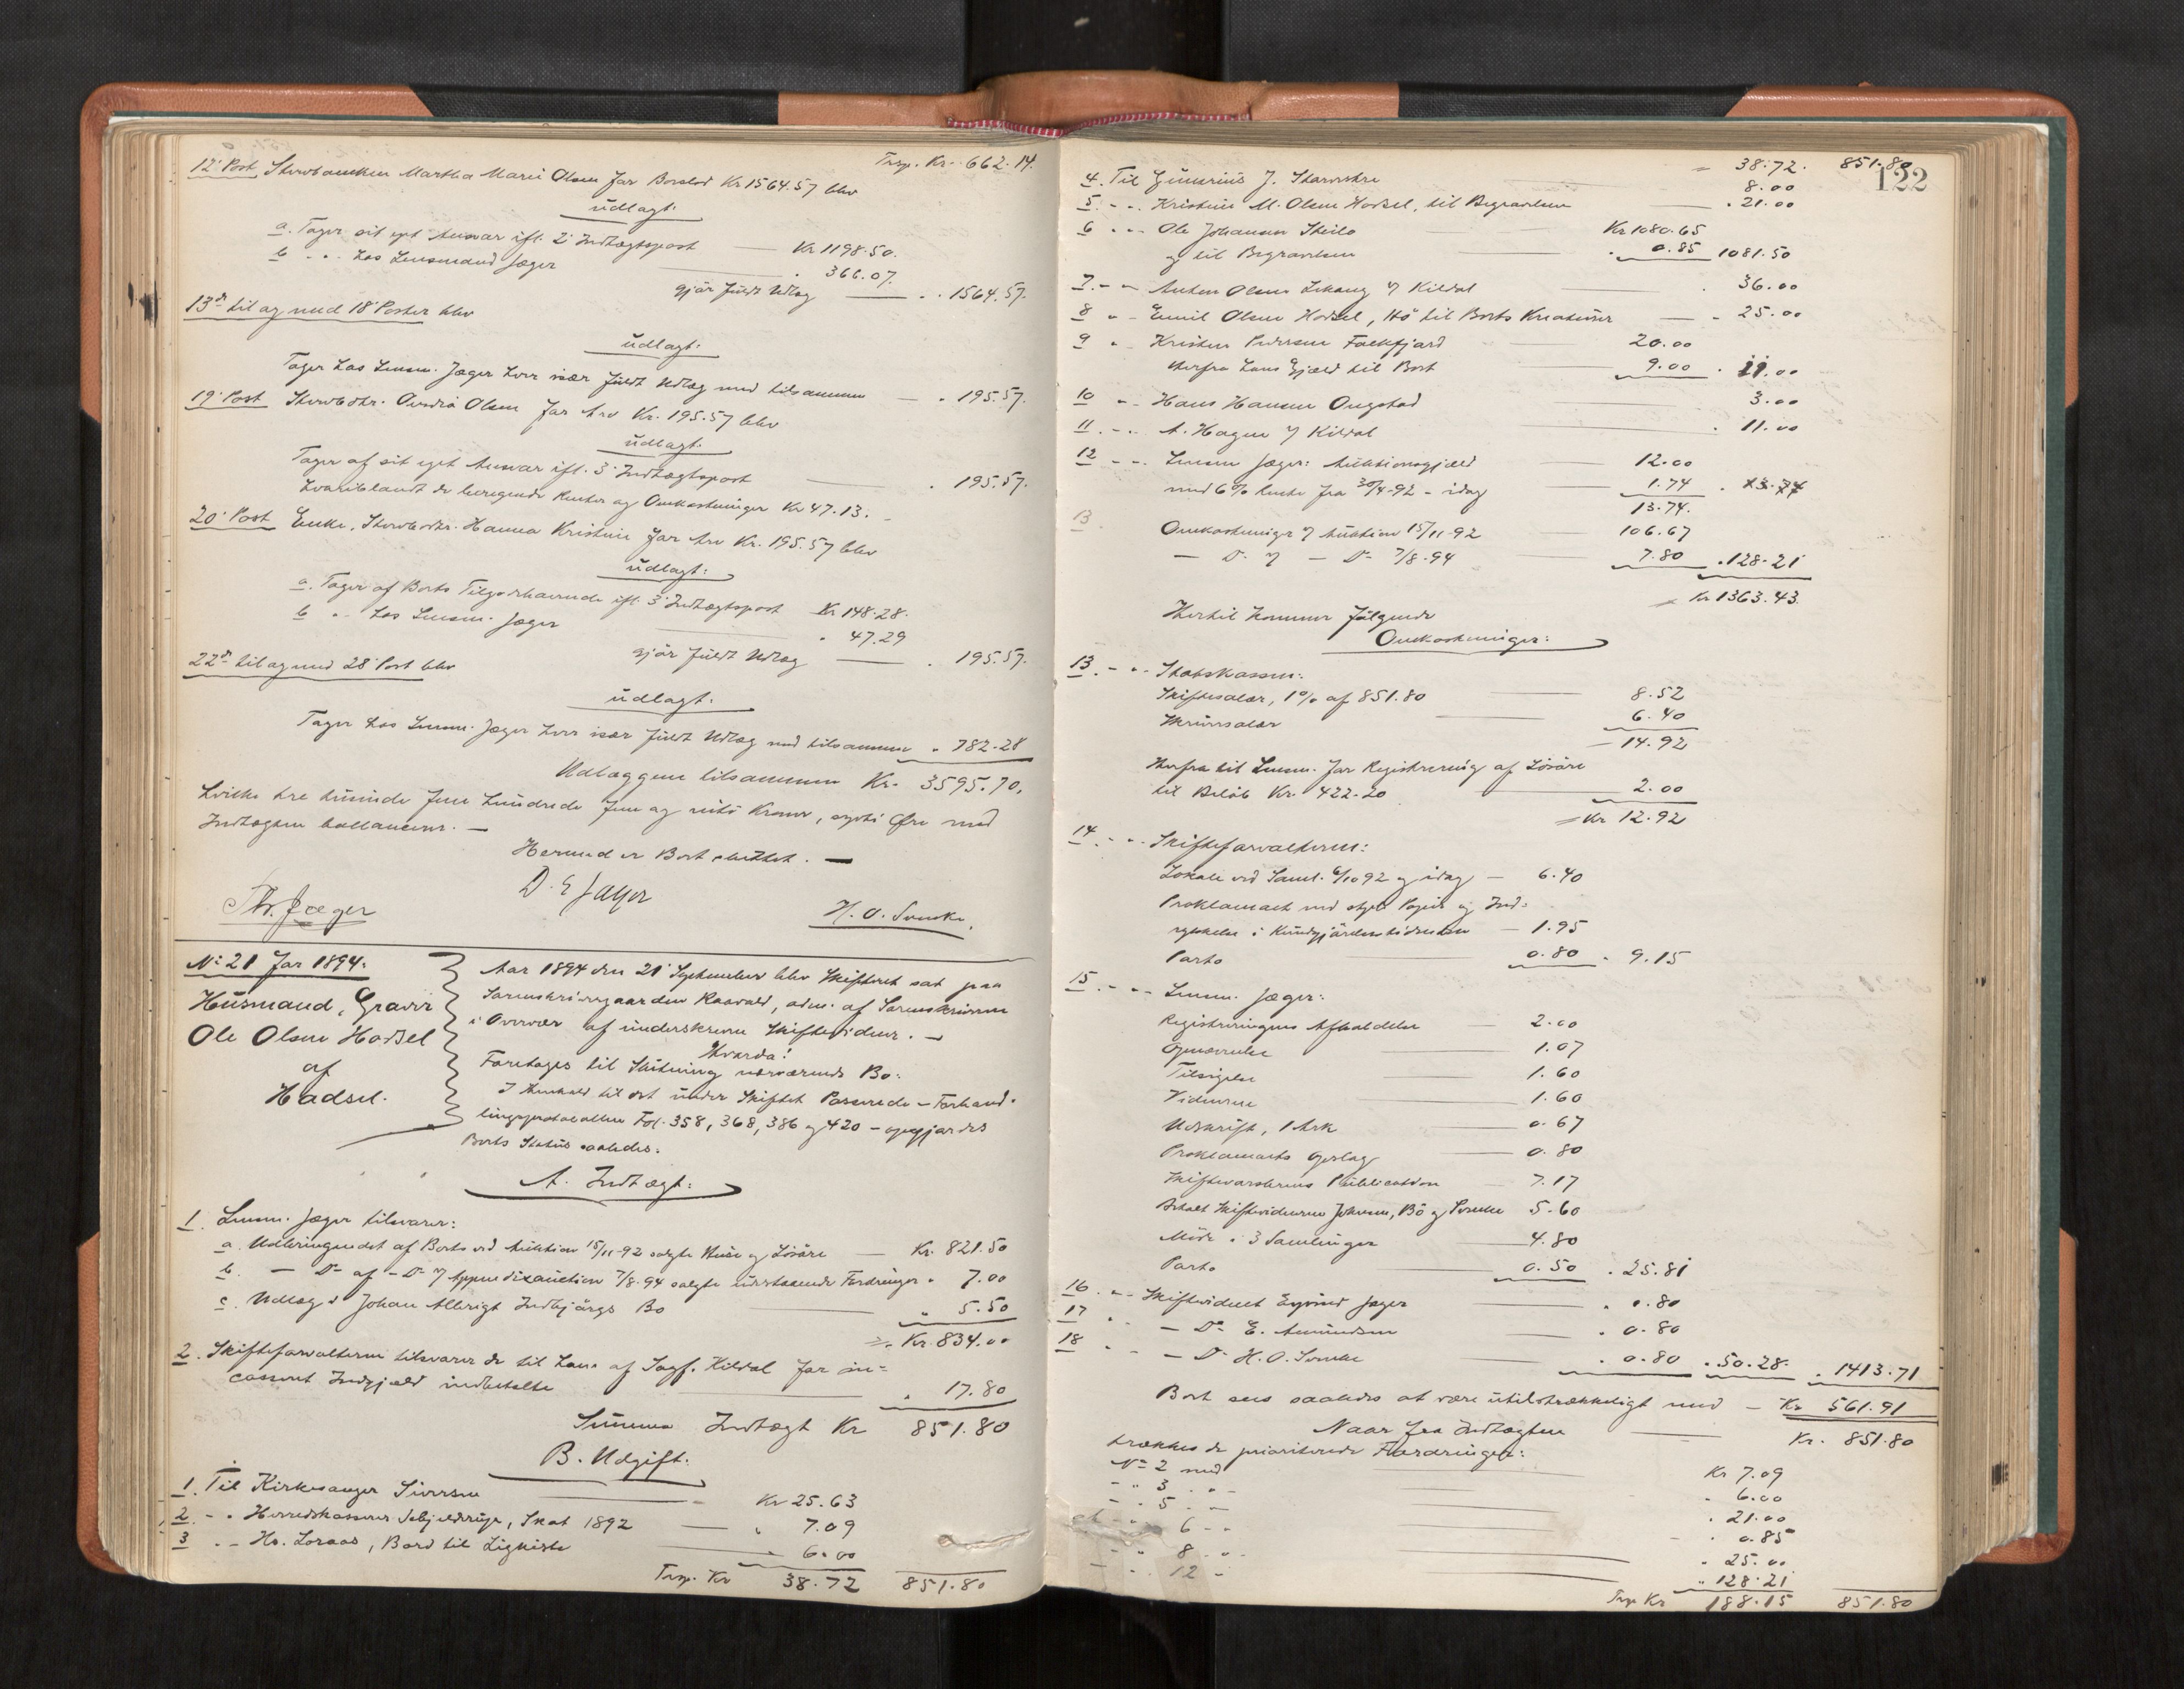 Trsp. Kr. 662.14.
12' Post, Martha Marie Olsen for Boeslod Kr 1564.57 blev
udlagt:
a. Tager sit eget Ansvar ifl. 2' Indtægtspost — Kr 1198.50.
b. - " - hos Lensmand Jæger — " 366.07.
gjør fuldt Udlæg — " 1564.57.
13de til og med 18' Poster blev
udlagt:
Tager hos Lensm. Jæger hver især fuldt Udlæg med tilsammen — " 195.57.
19' Post Olsen for Arv Kr. 195.57 blev
udlagt:
Tager af sit eget Ansvar ifl. 3' Indtægtspost — " 195.57.
hvoriblandt de beregnede Renter og Omkostninger Kr 47.13.
20' Post Enke, Hanna Kristine for Arv Kr. 195.57 blev
udlagt:
a. Tager af Boets Tilgodehavende ifl. 3' Indtægtspost Kr 148.28.
b " - hos Lensm. Jæger — " 47.29
gjør fuldt Udlæg — " 195.57.
22de til og med 28' Post blev
udlagt:
Tager hos Lensm. Jæger hver især fuldt Udlæg med tilsammen " 782.28
Udlæggene tilsammen Kr. 3595.70,
hvilke tre tusinde fem hundrede fem og niti Kroner, sytti Øre med
Indtægten ballancerer. —
Hermed er Boet sluttet. —
Thr. Jæger
D. E Jæger
H. O. Svenke.
No 21 for 1894:
Husmand, Graver
Ole Olsen Hadsel
af
Hadsel.
Aar 1894 den 21' September blev Skifteret sat paa
Sorenskrivergaarden Raavold, adm. af Sorenskriveren
i Overvær af underskrevne Skiftevidner. —
Hvorda:
Foretages til Slutning nærværende Bo:
I Henhold til det under Skiftet Passerede — Forhand-
lingsprotocollen Fol. 358, 368, 386 og 420 — opgjordes
Boets Status saaledes:
A. Indtægt:
1. Lensm. Jæger tilsvarer:
a. Udbringendet af Boets ved Auktion 15/11-92 solgte Huse og Løsøre — Kr. 821.50
b. — Do af — Do 7/8-94 solgte udestaaende Fordringer " 7.00
c. Udlæg i Johan Albrigt Indbjørgs Bo — " 5.50
Kr. 834.00
2. Skifteforvalteren tilsvarer de til ham af Sagf. Kildal for in-
casseret Indgjæld indbetalte — " 17.80
Summa Indtægt Kr 851.80
B. Udgift:
1. Til Kirkesanger Sivertsen — Kr 25.63
2. - " Herredskasserer, Skat 1892 — " 7.09
3 " - Hs. Loraas, Bord til Ligkiste — " 6.00
Trsp. Kr 38.72 851.80
122
38.72. 851.80
4. Til J. — 8.00
5. - " - Kristine M. Olsen Hadsel, til Begravelsen — " 21.00
6 " - - Ole Johansen — Kr 1080.65
og til Begravelsen " 0.85 1081.50
7. - " Anton Olsen v/ Kildal — " 36.00
8 " - Emil Olsen Hadsel, Hø til Boets Kreaturer — " 25.00
9 " - Kristen Pedersen Falkfjord — 20.00
Herfra hans Gjæld til Boet 9.00 " 11.00
10 " - Hans Hansen Ongstad 3.00
11 . - . A. Hagen v/ Kildal — " 11.00
12 - - . Lensm Jæger: Auktionsgjæld — 12.00
med 6% Rente fra 30/4-92 - idag — 1.74 " 13.74
13.74.
13. Omkostninger v/ Auktion 15/11-92 106.67
— Do v/ — Do 7/8-94 7.80 " 128.21
Kr 1363.43.
Hertil kommer følgende
Omkostninger:
13. - " - Statskassen:
Skiftesalær, 1% af 851.80 — 8.52
Skriversalær — 6.40
14.92
Herfra til Lensm. for Registrering af Løsøre
til Beløb Kr. 422.20 — 2.00
Kr 12.92
14 - - - Skifteforvalteren:
Lokale ved Saml. 6/10 92 og idag — 6.40
Proklamaet med stplt Papir og Ind-
rykkelse i Kundgjørelsestidenden — 1.95
Porto 0.80 " 9.15
15 . - " - Lensm. Jæger:
Registreringens Afholdelse — 2.00
Opnævnelse — 1.07
Tilsigelse — 1.60
Vidnerne — 1.60
Udskrift, 1 Ark — 0.67
Proklamaets Opslag — 0.80
Publication — 7.17
Betalt Skiftevidnerne Johnsen, Bø og Svenke 5.60
Møde i 3 Samlinger — 4.80
Porto — 0.50 " 25.81
16 " - Skiftevidnet Eyvind Jæger — " 0.80
17 " - Do E. Amundsen — " 0.80
18 - - Do H. O. Svenke — " 0.80 " 50.28. " 1413.71
Boet sees saaledes at være utilstrækkeligt med — Kr 561.91
Naar fra Indtægten — Kr. 851.80
trækkes de prioriterede Fordringer:
No 2 med Kr 7.09
- " 3 " - " 6.00
- " 5 " - " 21.00
- " 6 - - " 0.85
- " 8 " - " 25.00
- " 12 - " 128.21
Trsp Kr 188.15 851.80